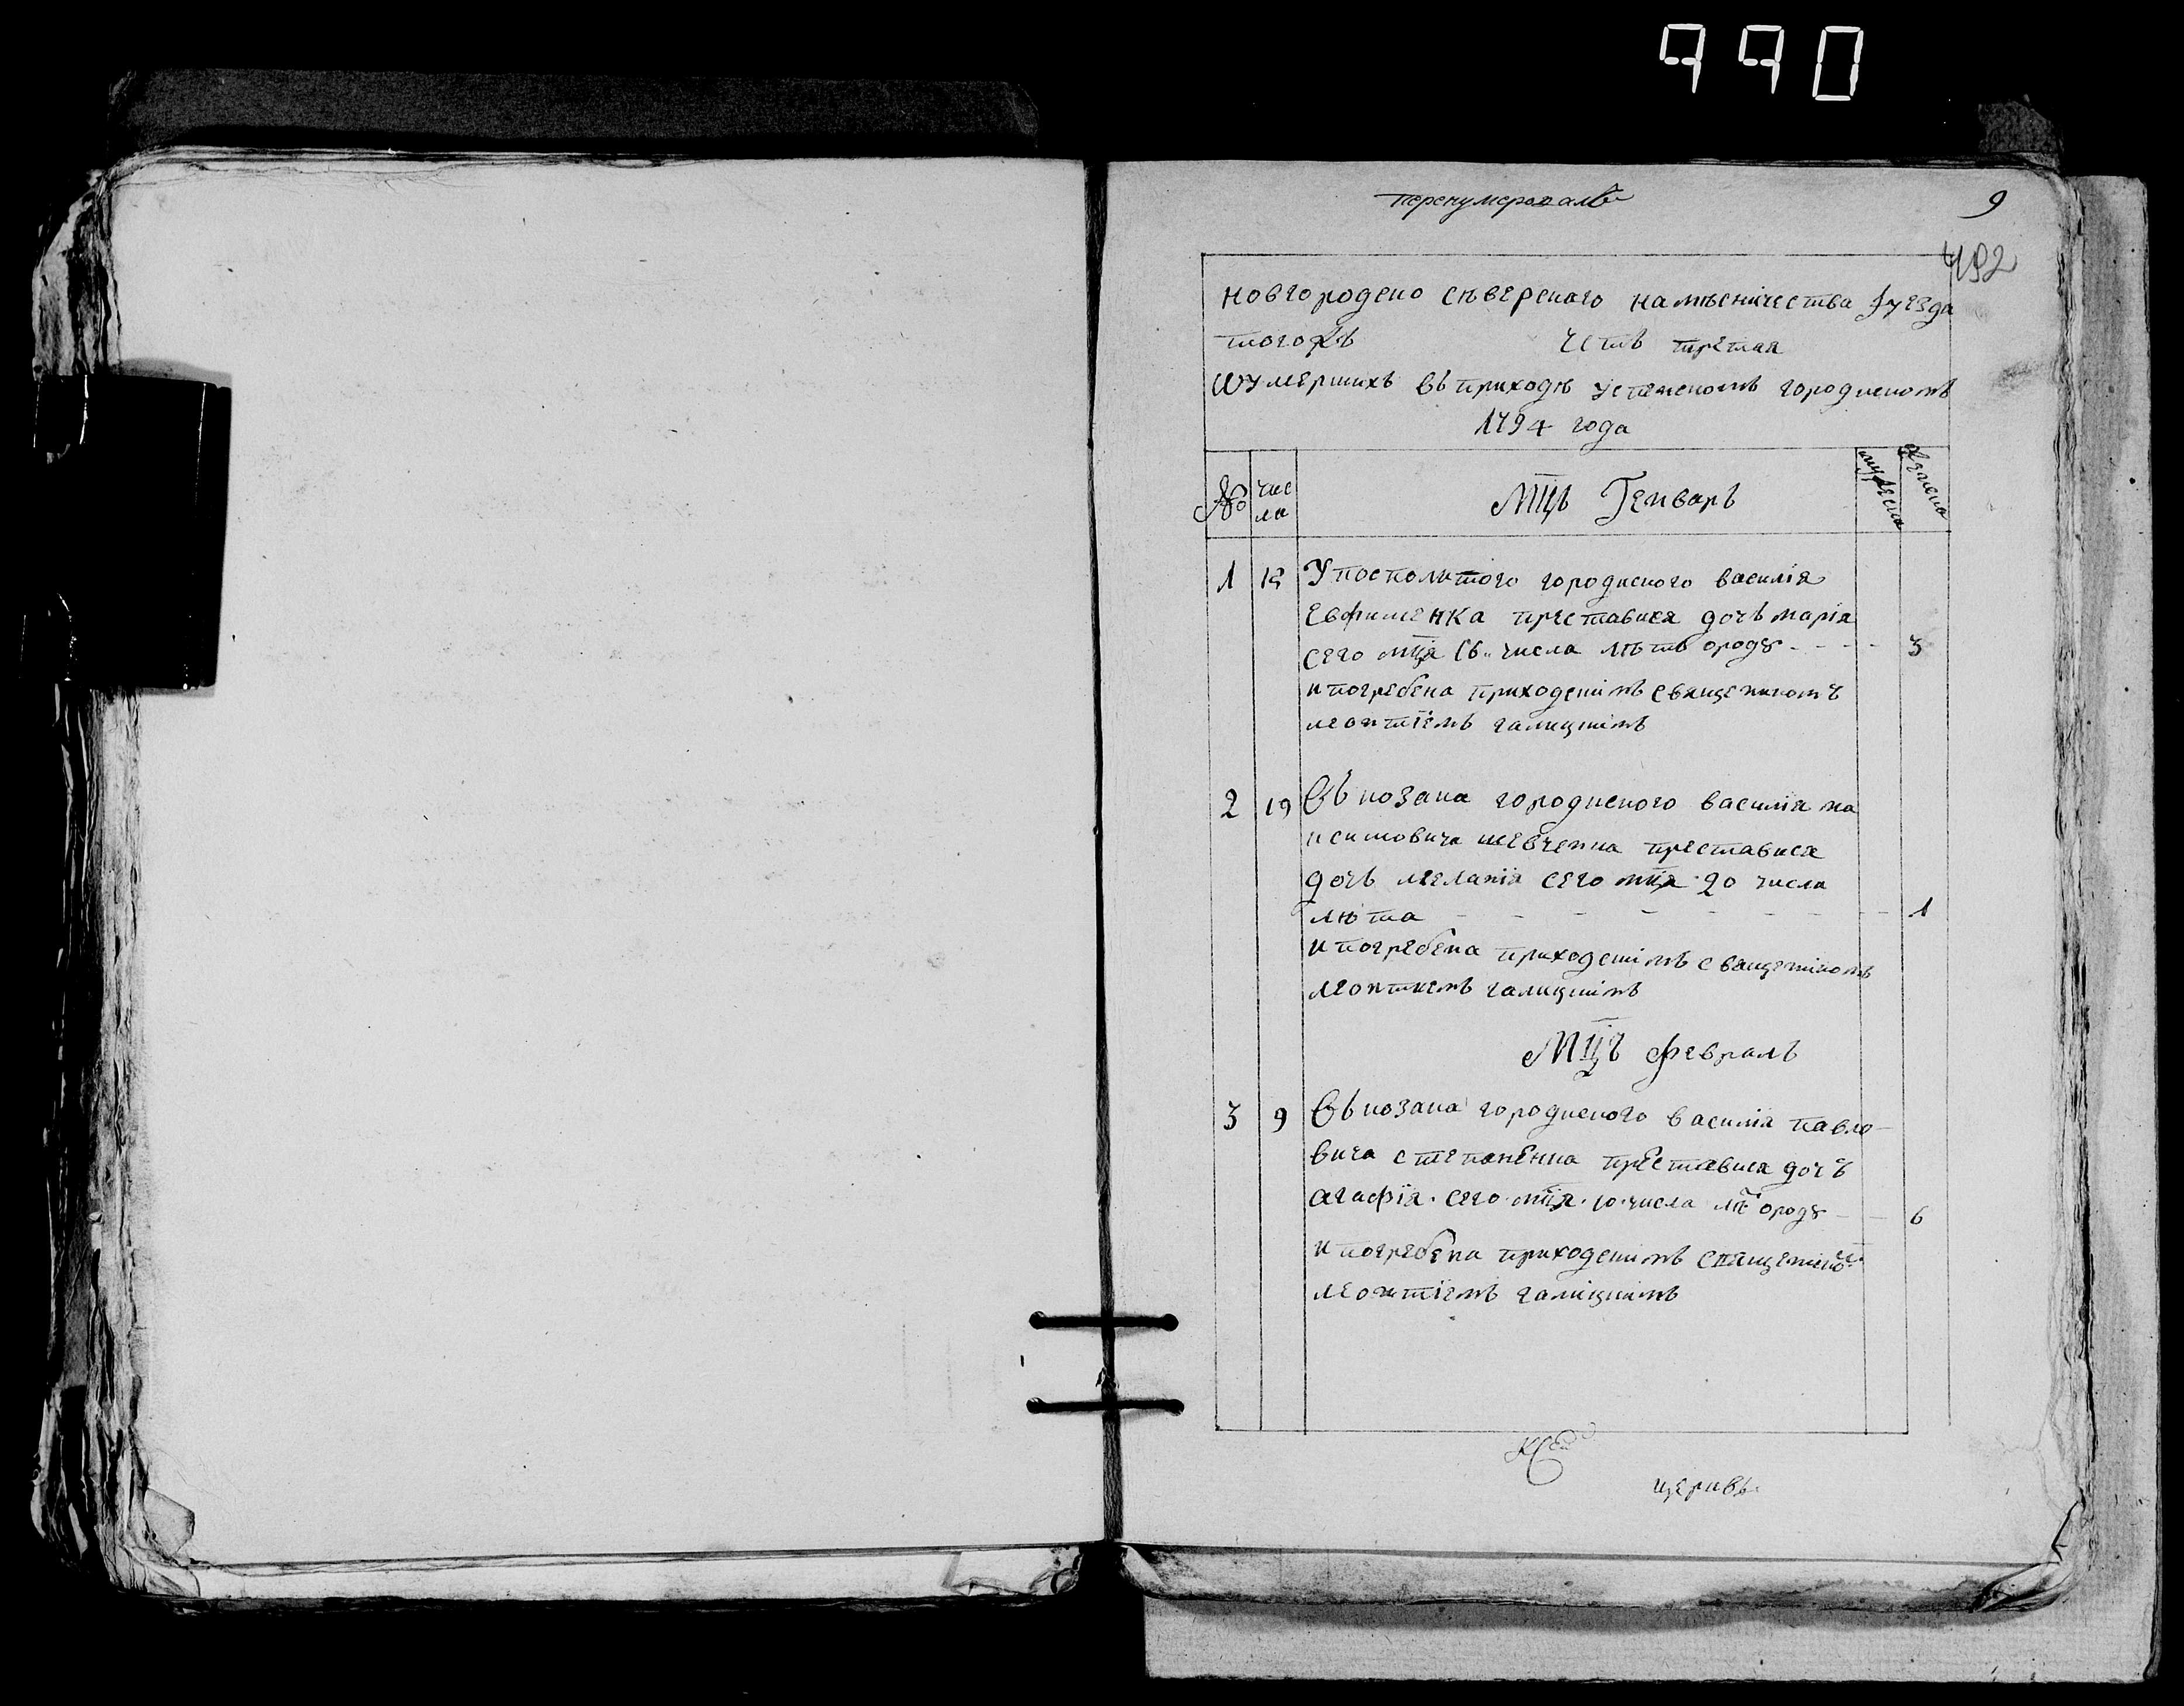 990
перенумеровалъ 9
492
Новгородско сѣверскаго намѣсничества у езда
тогожъ Часть третая
Ѡ умершихъ въ приходѣ успенскомъ городискомъ
1794 года
№ чис мужеска женска
ла МЦЪ Генварь
1 15 У посполитого городиского василія
Евфименка преставися дочь марія
сего мця 16 числа лѣтъ ѡроду - - - - 3
и погребена приходскимъ священикомъ
леонтіемъ галицкимъ
2 19 Въ козака городиского василія ма
ксимовича шевченка преставися
дочь меланія сего мця 20 числа
лѣта - - - - - - - - 1
и погребена приходскимъ священикомъ
леонтиемъ галицкимъ
МЦЪ февраль
3 9 Въ козака городиского василія павло
вича степаненка преставися дочь
агафія сего мця 10 числа лѣ ѡроду - - 6
и погребена приходскимъ священико
леонтіемъ галицкимъ
Къ сей
церкви